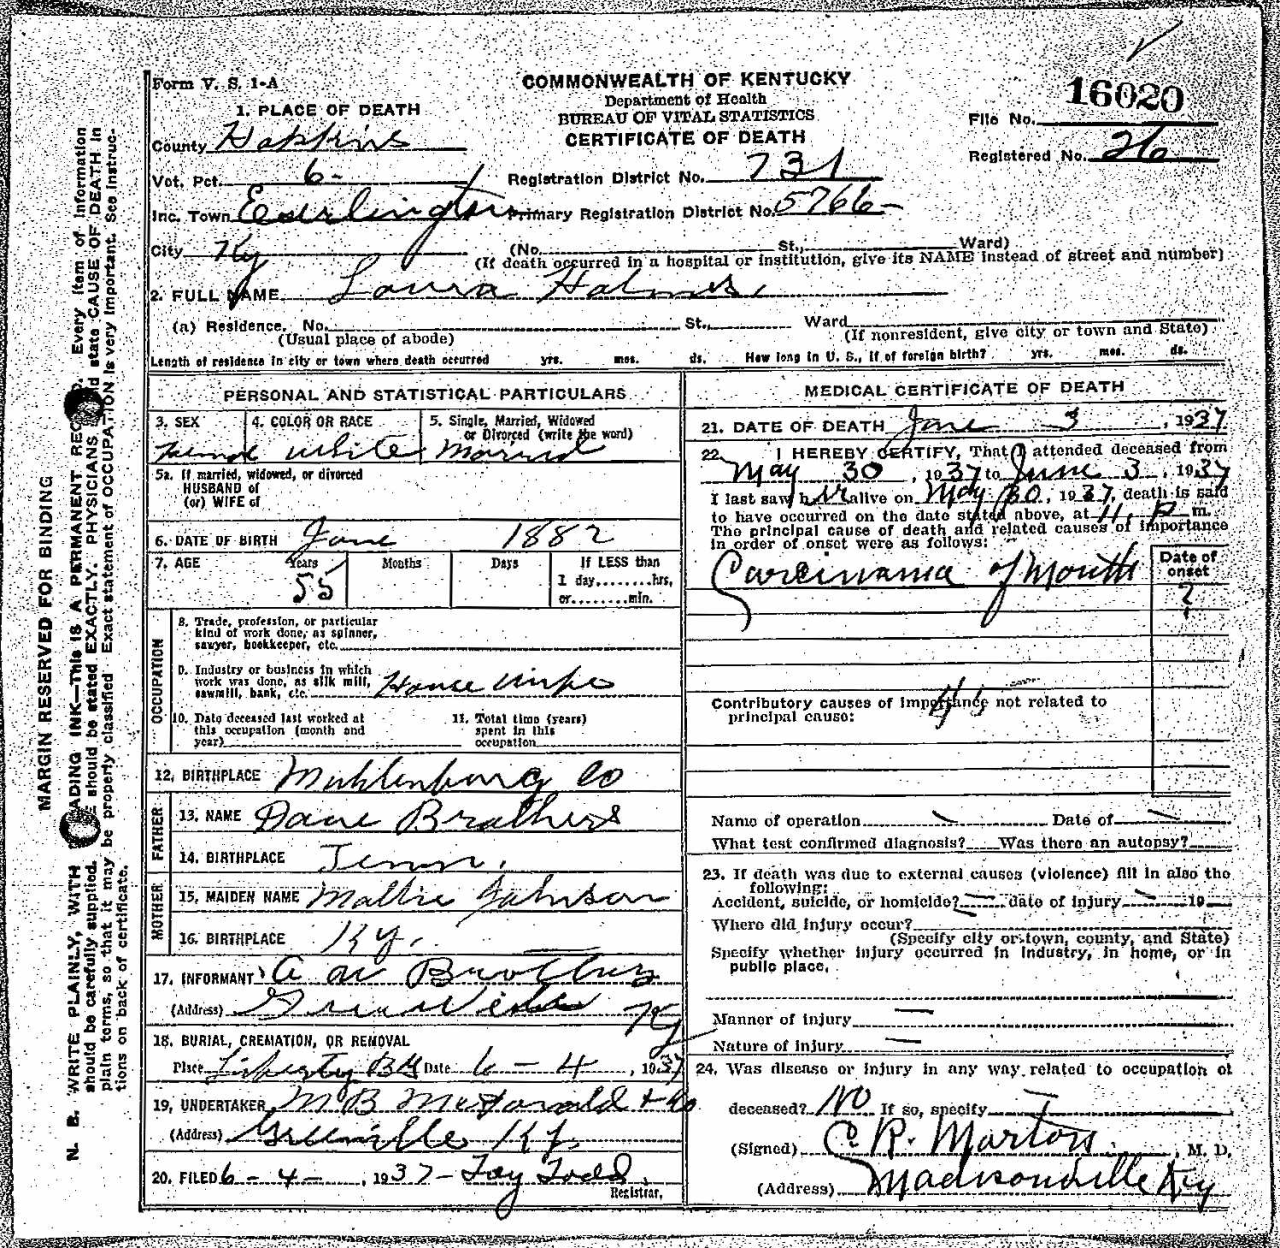 Form V. S. 1-A
COMMONWEALTH OF KENTUCKY
Department of Health
BUREAU OF VITAL STATISTICS
CERTIFICATE OF DEATH
16020
File No.
Registered No. 26
1. PLACE OF DEATH
County Hopkins
Vot. Pct. 6-
Registration District No. 731
Inc. Town Earlington
Primary Registration District No. 5766-
City Ky (No. St., Ward)
(If death occurred in a hospital or institution, give its NAME instead of street and number)
2. FULL NAME Laura Holmes
(a) Residence, No. St., Ward
(Usual place of abode) (If nonresident, give city or town and State)
Length of residence in city or town where death occurred yrs. mos. ds. How long in U. S., if of foreign birth? yrs. mos. ds.
PERSONAL AND STATISTICAL PARTICULARS
3. SEX 4. COLOR OR RACE 5. Single, Married, Widowed
or Divorced (write the word)
Female White Married
5a. If married, widowed, or divorced
HUSBAND of
(or) WIFE of
6. DATE OF BIRTH June 1882
7. AGE Years Months Days If LESS than
55 1 day,........hrs,
or........min.
OCCUPATION
8. Trade, profession, or particular
kind of work done, as spinner,
sawyer, bookkeeper, etc.
9. Industry or business in which
work was done, as silk mill,
sawmill, bank, etc. House wife
10. Date deceased last worked at
this occupation (month and
year)
11. Total time (years)
spent in this
occupation
12. BIRTHPLACE Muhlenburg Co
FATHER
13. NAME Dave Brothers
14. BIRTHPLACE Tenn.
MOTHER
15. MAIDEN NAME Mallie Johnson
16. BIRTHPLACE Ky.
17. INFORMANT Brothers
(Address) Greenville Ky
18. BURIAL, CREMATION, OR REMOVAL
Place Liberty Date 6-4, 1937
19. UNDERTAKER M B McDonald + Co
(Address) Greenville Ky.
20. FILED 6-4-, 1937- Todd
Registrar.
MEDICAL CERTIFICATE OF DEATH
21. DATE OF DEATH June 3, 1937
22. I HEREBY CERTIFY, That I attended deceased from
May 30, 1937 to June 3, 1937
I last saw her alive on May 30, 1937, death is said
to have occurred on the date stated above, at 11 P m.
The principal cause of death and related causes of importance
in order of onset were as follows:
Date of
onset
Carcinoma of Mouth ?
Contributory causes of importance not related to
principal cause:
45
Name of operation Date of
What test confirmed diagnosis? Was there an autopsy?
23. If death was due to external causes (violence) fill in also the
following:
Accident, suicide, or homicide? date of injury 19
Where did injury occur?
(Specify city or town, county, and State)
Specify whether injury occurred in industry, in home, or in
public place.
Manner of injury
Nature of injury
24. Was disease or injury in any way related to occupation of
deceased? No If so, specify
(Signed) C. R. Morton, M. D.
(Address) Madisonville Ky
MARGIN RESERVED FOR BINDING
N. B. WRITE PLAINLY, WITH ADING INK—THIS IS A PERMANENT REC. Every item of information
should be carefully supplied. should be stated EXACTLY. PHYSICIANS state CAUSE OF DEATH in
plain terms, so that it may be properly classified. Exact statement of OCCUPATION is very important. See instruc-
tions on back of certificate.